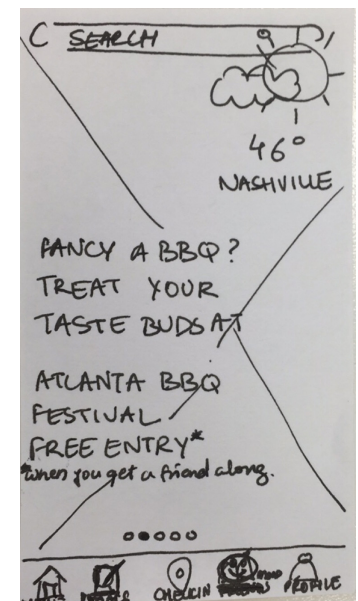 C SEARCH
46°
NASHVILLE
FANCY A BBQ?
TREAT YOUR
TASTE BUDS AT
ATLANTA BBQ
FESTIVAL
FREE ENTRY*
*when you get a friend along.
CHECKIN PROFILE